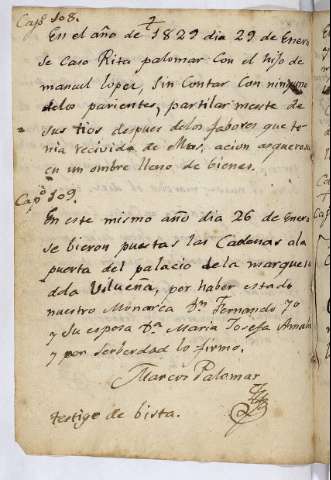 Capº 108.
En el año de 1829 dia 29 de Enero
se Caso Rita palomar Con el hijo de
manuel lopez, Sin Contar Con ninguno
delos parientes, partilarmerte de
sus tios despues delos fabores que te-
nia recivida de Mas, acion asquerosa
en un ombre lleno de bienes.
Capº 109.
En este mismo año dia 26 de Enero
se bieron puestas las Cadenas ala
puerta del palacio de la marquesa
dela Vilueña, por haber estado
nuestro Monarca Dn Fernando 7o
y Su esposa Dª Maria Josefa Amali
y por serberdad lo firmo.
Marcos Palomar
testigo de bista.